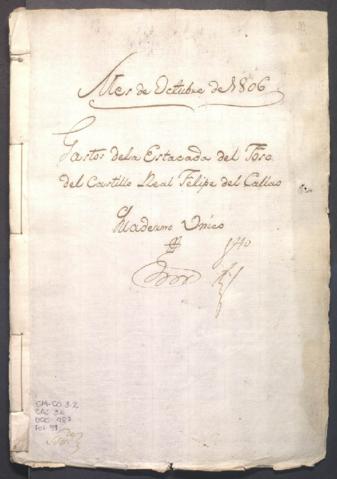 Mes de Octubre de 1806
Gastos dela Estacada del Foso
del Castillo Real Felipe del Callao
Quaderno Unico
GM-CO 3.2
CAJ 36
DOC 487